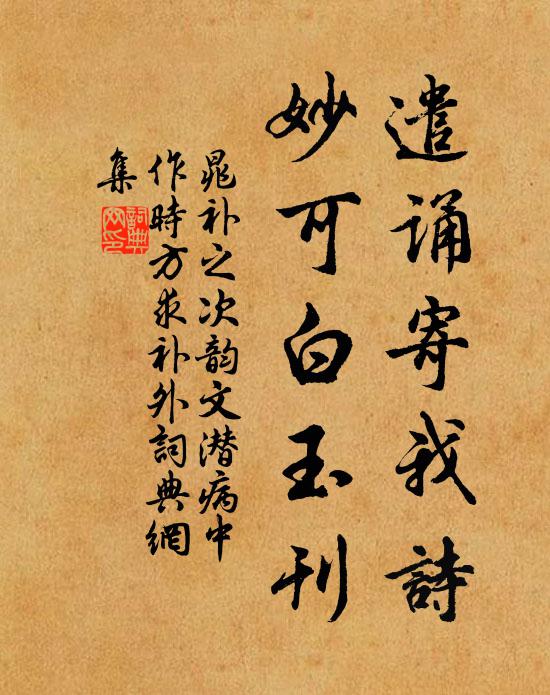 遣诵寄我詩
妙可白玉刊
晁补之次韵文潜病中
作時方求补外詞典網
集
詞典網印